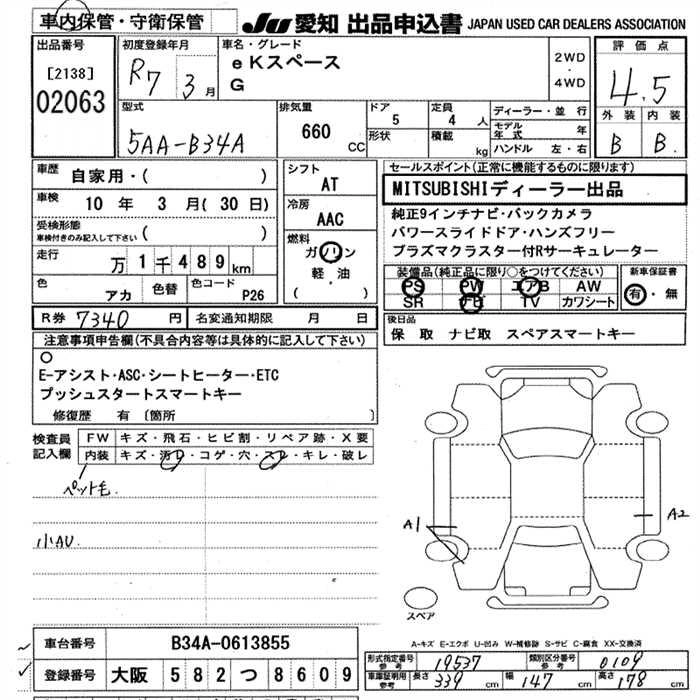 車内保管・守衛保管 JU 愛知 出品申込書 JAPAN USED CAR DEALERS ASSOCIATION
出品番号 [2138] 02063
初度登録年月 R7年 3月
車名・グレード eKスペース
G
2WD・4WD
評価点 4.5
外装 内装
B B.
型式 5AA-B34A
排気量 660 CC
ドア 5
形状
定員 4 人
積載 kg
ディーラー・並行
モデル年式 年
ハンドル 左・右
車歴 自家用・( )
車検 10 年 3 月(30 日)
受検形態 車検付きのみ記入して下さい ( )
走行 万 1 千 4 8 9 km
色 アカ 色替 色コード P26
シフト AT
冷房 AAC
燃料 ガソリン
軽・油
( )
セールスポイント(正常に機能するものに限ります)
MITSUBISHIディーラー出品
純正9インチナビ・バックカメラ
パワースライドドア・ハンズフリー
プラズマクラスター付Rサーキュレーター
装備品(純正品に限り○をつけてください)
PS PW エアB AW
SR ナビ TV カワシート
新車保証書
有・無
R券 7340 円 名変通知期限 月 日
後日品
保 取 ナビ取 スペアスマートキー
注意事項申告欄(不具合内容等は具体的に記入して下さい)
○
E-アシスト・ASC・シートヒーター・ETC
プッシュスタートスマートキー
修復歴 有 〔箇所 〕
検査員記入欄
FW キズ・飛石・ヒビ割・リペア跡・X要
内装 キズ・汚れ・コゲ・穴・スレ・キレ・破レ
ペット毛.
小AU.
A1
A2
スペア
A-キズ E-エクボ U-凹み W-補修跡 S-サビ C-腐食 XX-交換済
車台番号 B34A-0613855
登録番号 大阪 5 8 2 つ 8 6 0 9
形式指定番号 参考 19537 類別区分番号 参考 0109
車庫証明用参考 長さ 339 cm 幅 147 cm 高さ 178 cm